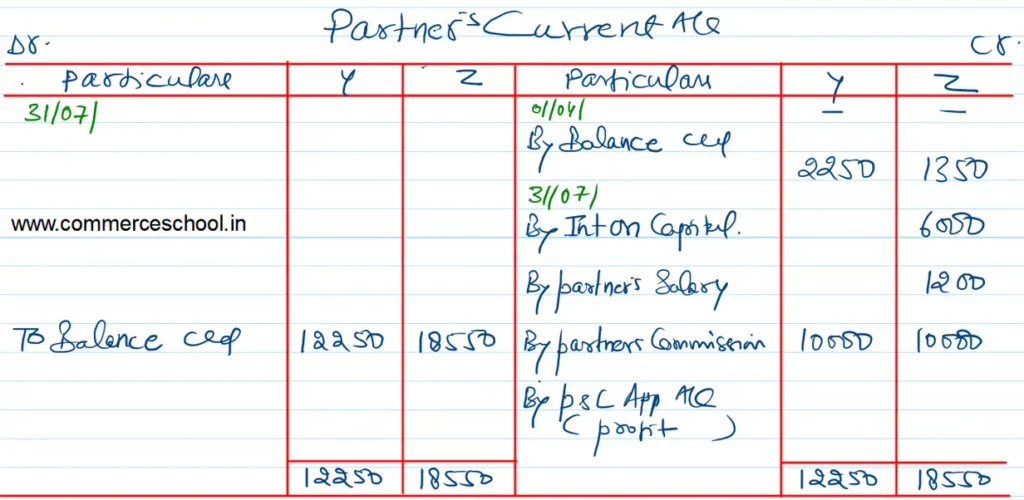 Partner's Current A/c
Dr. Cr.
Particulars Y Z Particulars Y Z
31/07/ 01/04/ — —
By Balance c/f
2250 1350
31/07/
www.commerceschool.in By Int on Capital. 6000
By partner's Salary 1200
To Balance c/f 12250 18550 By partners Commission 10000 10000
By P&L App A/c
( profit )
12250 18550 12250 18550